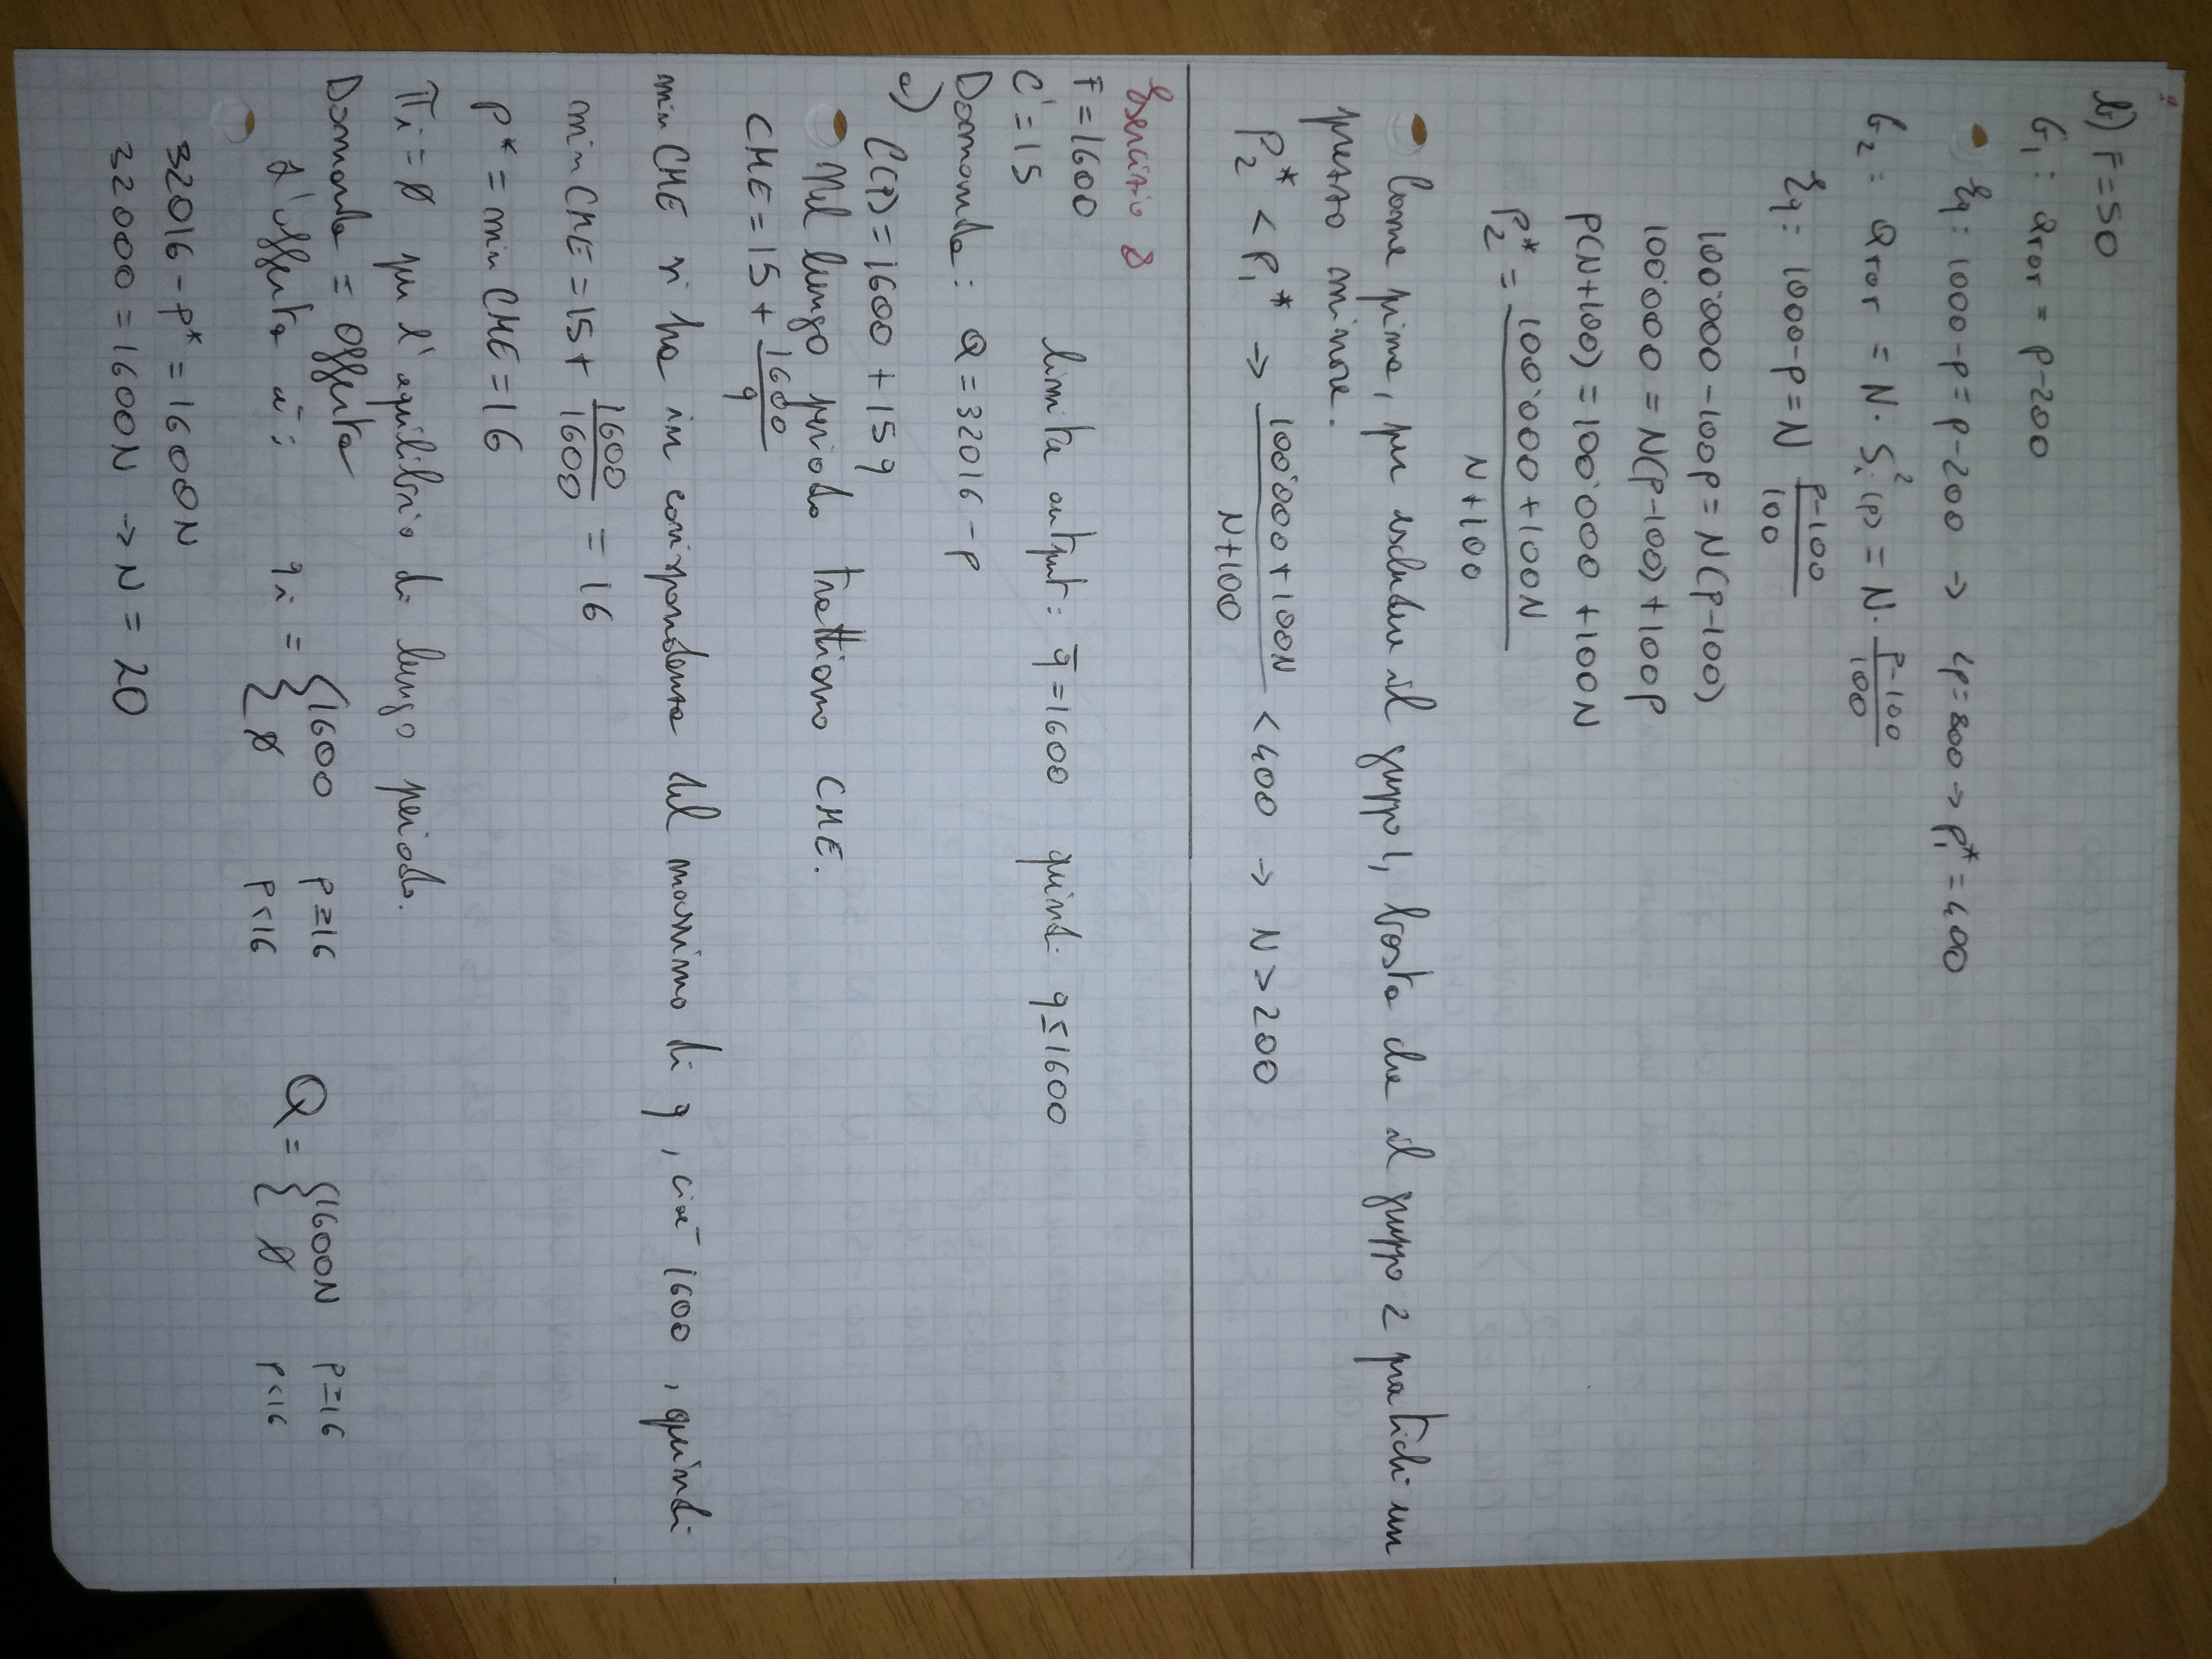 b) F=50
G₁: Q_TOT = p-200
Eq: 1000-p = p-200 → 2p=800 → p₁* = 400
G₂: Q_TOT = N·S_i²(p) = N·(p-100)/100
Eq: 1000-p = N (p-100)/100
100'000-100p = N(p-100)
100'000 = N(p-100)+100p
p(N+100) = 100'000+100N
P₂* = (100'000+100N)/(N+100)
Come prima, per escludere il gruppo 1, basta che il gruppo 2 pratichi un
prezzo minore.
P₂* < P₁* → (100'000+100N)/(N+100) < 400 → N > 200
Esercizio 8
F=1600
limite output: q̄=1600 quindi q≤1600
C'=15
Domanda: Q=32016-p
a)
C(q)=1600+15q
Nel lungo periodo trattiamo CME.
CME=15+1600/q
min CME si ha in corrispondenza del massimo di q, cioè 1600, quindi
min CME=15+1600/1600 = 16
p* = min CME=16
πi=∅ per l'equilibrio di lungo periodo.
Domanda = Offerta
L'offerta è: qi = {1600 p≥16 ∅ p<16 Q = {1600N p≥16 ∅ p<16
32016-p* = 1600N
32000=1600N → N = 20